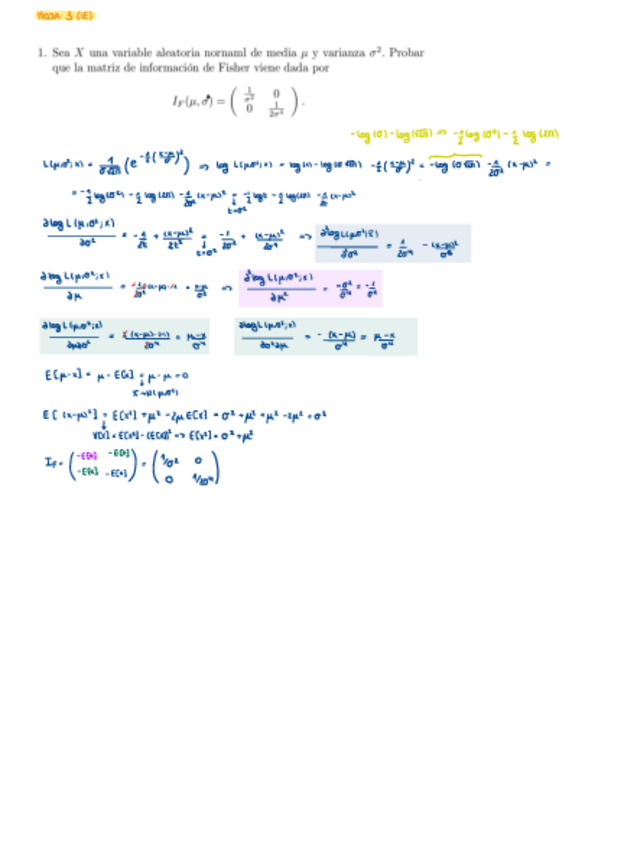 HOJA 3 (IE)
1. Sea X una variable aleatoria nornaml de media μ y varianza σ². Probar
que la matriz de información de Fisher viene dada por
I_F(μ, σ²) = ( 1/σ² 0 ; 0 1/2σ⁴ ).
-log(σ) - log(√2π) => -1/2 log(σ²) - 1/2 log(2π)
L(μ,σ²;x) = 1/σ√2π (e^{-1/2((x-μ)/σ)²}) => log L(μ,σ²;x) = log(1) - log(σ√2π) - 1/2((x-μ)/σ)² = -log(σ√2π) - 1/2σ² (x-μ)² =
= -1/2 log(σ²) - 1/2 log(2π) - 1/2σ² (x-μ)² = -1/2 log t - 1/2 log(2π) - 1/2t (x-μ)²
t=σ²
∂log L(μ,σ²;x)/∂σ² = -1/2t + (x-μ)²/2t² = -1/2σ² + (x-μ)²/2σ⁴ => ∂²log L(μ,σ²;x)/∂σ² = 1/2σ⁴ - (x-μ)²/σ⁶
t=σ²
∂log L(μ,σ²;x)/∂μ = = x-μ/σ² => ∂²log L(μ,σ²;x)/∂μ² = -σ²/σ⁴ = -1/σ²
∂log L(μ,σ²;x)/∂μ∂σ² = 2(x-μ)(-1)/2σ⁴ = μ-x/σ⁴ ∂log L(μ,σ²;x)/∂σ²∂μ = -(x-μ)/σ⁴ = μ-x/σ⁴
E[μ-x] = μ - E[x] = μ - μ = 0
X~N(μ,σ²)
E[(x-μ)²] = E[x²] + μ² - 2μE[x] = σ² + μ² + μ² - 2μ² = σ²
V[x] = E[x²] - (E[x])² => E[x²] = σ² + μ²
I_F = ( -E[•] -E[•] ; -E[•] -E[•] ) = ( 1/σ² 0 ; 0 1/2σ⁴ )